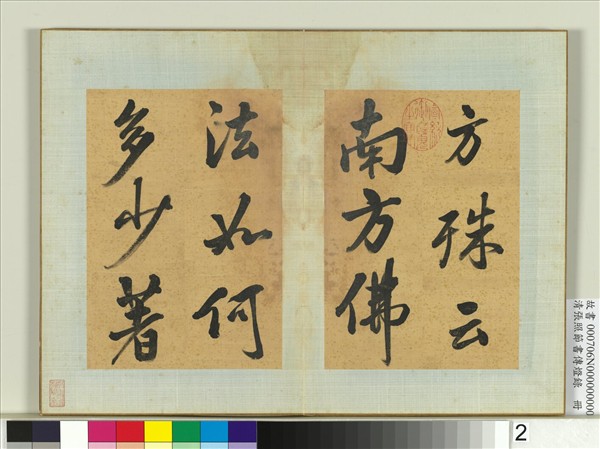 方殊云
南方佛
法如何
多少著
故書 000706N000000000
清張照節書傳燈錄 冊
2